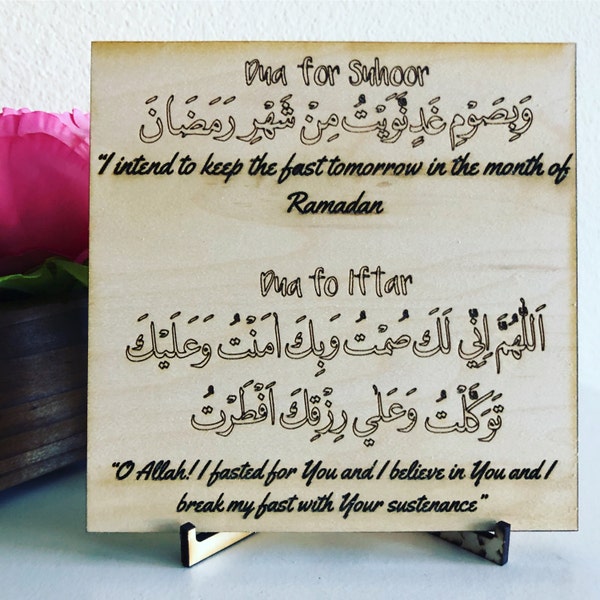 Dua for Suhoor
وَبِصَوْمِ غَدٍ نَّوَيْتُ مِنْ شَهْرِ رَمَضَانَ
"I intend to keep the fast tomorrow in the month of
Ramadan
Dua fo Iftar
اَللّٰهُمَّ اِنِّي لَكَ صُمْتُ وَبِكَ اٰمَنْتُ وَعَلَيْكَ
تَوَكَّلْتُ وَعَلٰي رِزْقِكَ اَفْطَرْتُ
"O Allah! I fasted for You and I believe in You and I
break my fast with Your sustenance"